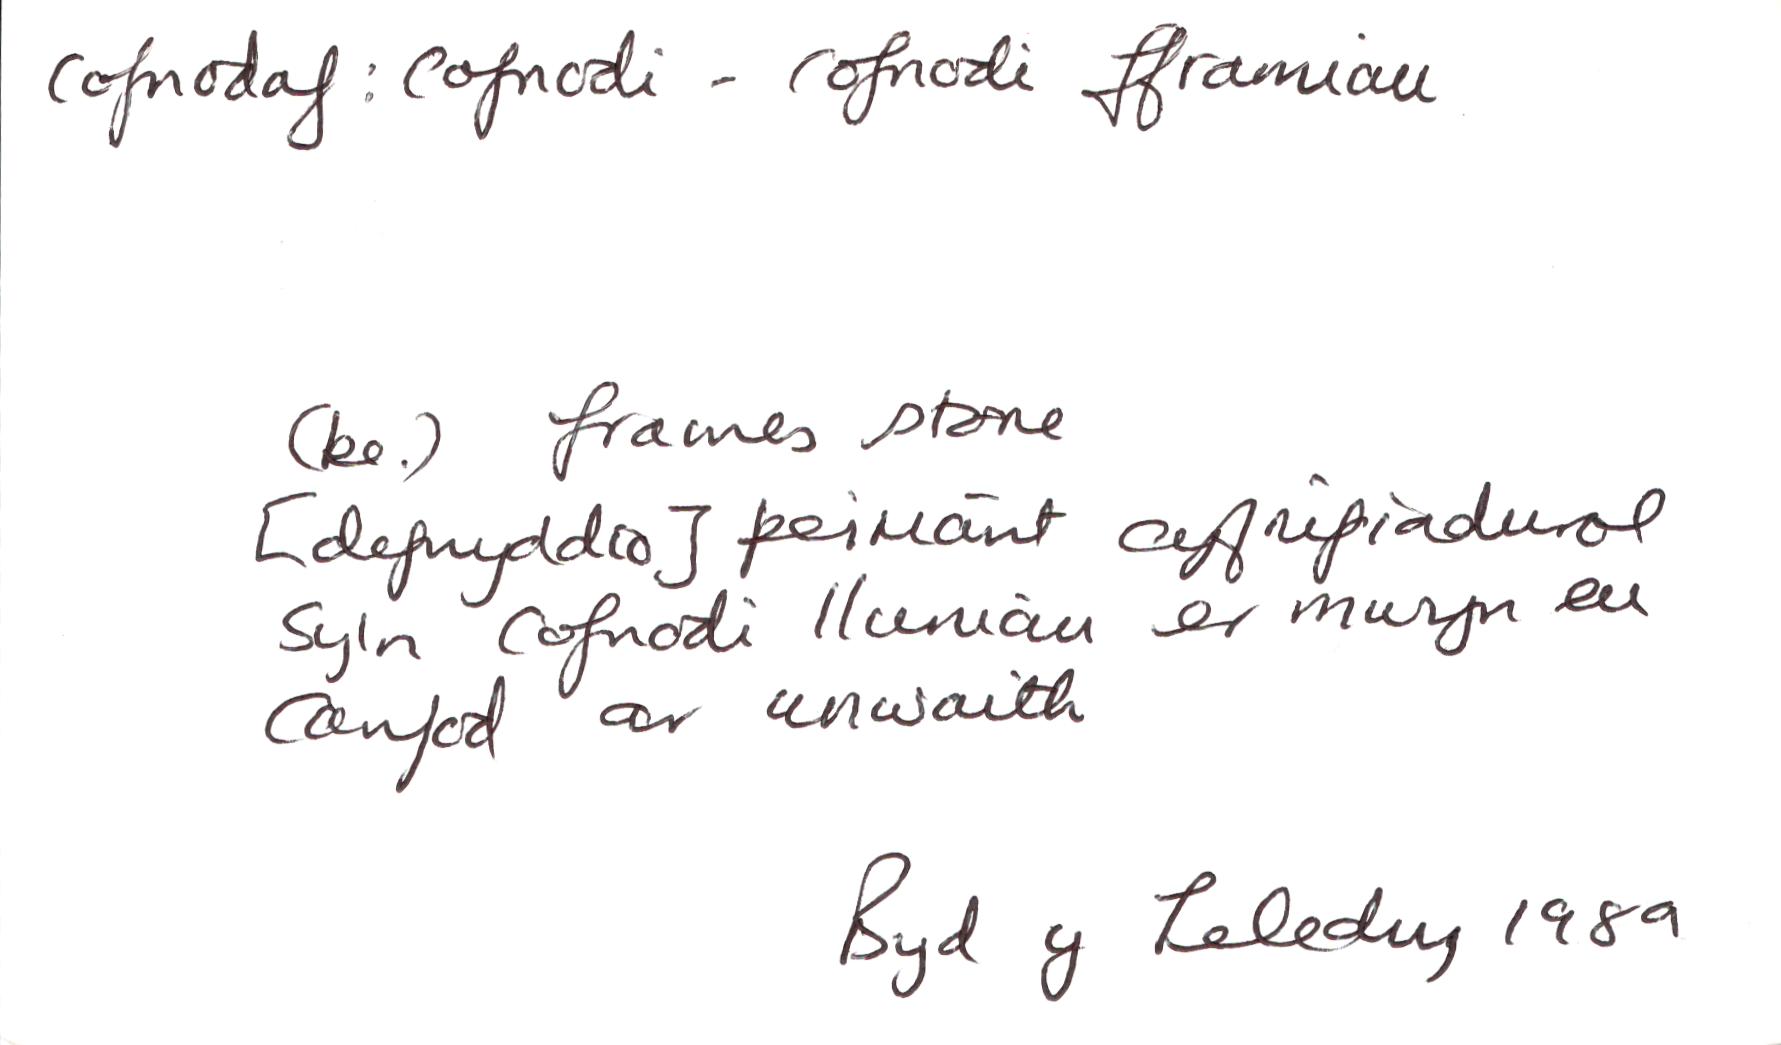 cofnodaf: cofnodi - cofnodi fframiau
(be.) frames store
[defnyddio] peiriant cyfrifiadurol
sy'n cofnodi lluniau er mwyn eu
canfod ar unwaith
Byd y Teledu, 1989